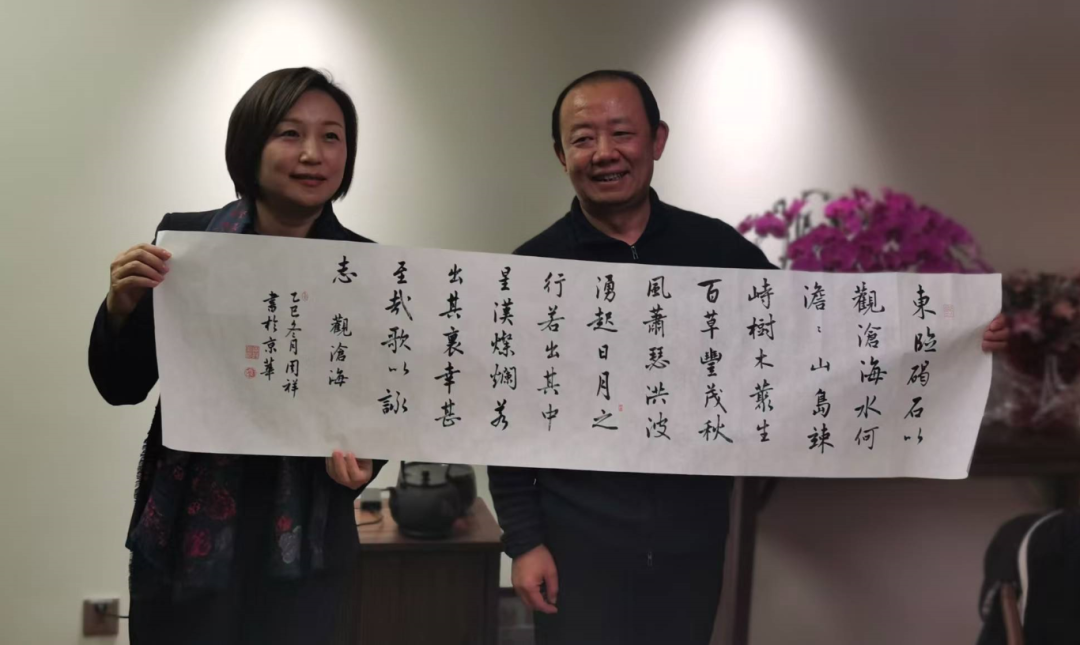 東臨碣石以
觀滄海水何
澹〻山島竦
峙樹木叢生
百草豐茂秋
風蕭瑟洪波
湧起日月之
行若出其中
星漢燦爛若
出其裏幸甚
至哉歌以詠
志 觀滄海
乙巳冬月周祥
書於京華